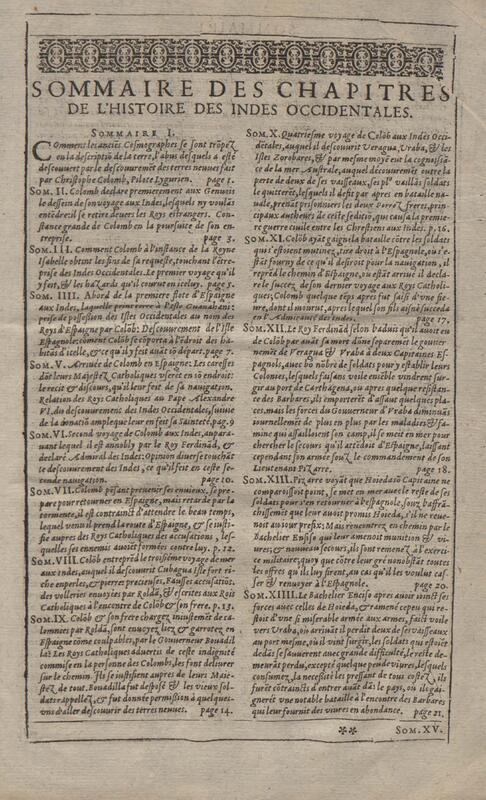 SOMMAIRE DES CHAPITRES
DE L'HISTOIRE DES INDES OCCIDENTALES.
SOMMAIRE I.
Comment les anciẽs Cosmographes se sont trõpez
en la descriptiõ de la terre, l'abus desquels a esté
descouvert par le descouvrement des terres neuves fait
par Christophe Colomb, Pilote Lygurien. page 1.
SOM. II. Colomb declare premierement aux Genois
le dessein de son voyage aux Indes, lesquels ny voulãs
entẽdre il se retire devers les Roys estrangers. Con-
stance grande de Colomb en la poursuite de son en-
treprise. page 3.
SOM. III. Comment Colomb à l'instance de la Royne
Isabelle obtint les fins de sa requeste, touchant l'ẽtre-
prise des Indes Occidentales. Le premier voyage qu'il
y feit, & les hazards qu'il courut en iceluy. page 5.
SOM. IIII. Abord de la premiere flote d'Espaigne
aux Indes,
prise de possession des Isles Occidentales au nom des
Roys d'Espaigne par Colõb: Descouvrement de l'Isle
Espagnole: cõment Colõb se cõporta à l'ẽdroit des ha-
bitãs d'icelle, & ce qu'il y feit auãt sõ départ. page 7.
SOM. V. Arrivée de Colomb en Espaigne: Les caresses
dõt leurs Majestez Catholiques vserẽt en sõ endroit:
le recit & discours, qu'il leur feit de sa navigation.
Relation des Roys Catholiques au Pape Alexandre
VI. du descouvrement des Indes Occidentales, suivie
de la donatiõ ample que leur en feit sa Sainteté. pag. 9
SOM. VI. Second voyage de Colomb aux Indes, aupara-
uant lequel il est annobli par le Roy Ferdinãd, &
declaré Admiral des Indes: Opinion diverse toucha̅t
ce descouvrement des Indes, ce qu'il feit en ceste se-
conde navigation. page 10.
SOM. VII. Colomb pẽsant prevenir ses envieux, se pre-
pare pour retourner en Espaigne, mais retardé par la
tormente, il est contraint d'attendre le beau temps,
lequel venu il prend la route d'Espaigne, & se justi-
fie aupres des Roys Catholiques des accusations, les-
quelles ses ennemis avoiẽt formées contre luy. p. 12.
SOM. VIII. Colõb entreprẽd le troisiéme voyage de mer
aux Indes, auquel il descouvrit Cubagua Isse fort ri-
che en perles, & pierres precieuses. Fausses accusatiõs
des volleries envoyées par Roldã, & escrites aux Rois
Catholiques à l'encontre de Colõb & son frere. p. 13.
SOM. IX. Colõb & son frere chargez injustemẽt & ca-
lomniez par Roldã, sont envoyez liez & garrotez en
Espaigne cõme coulpables, par le Gouverneur Bouadil
la: Les Roys Catholiques advertis de ceste indignité
commise en la personne des Colombs, les font delivrer
sur le chemin. Ils se justifient aupres de leurs Maies-
tez de tout, Bouadilla fut déposé & les vieux sol-
dats rappellez, & fut donné permission à quelques-
vns d'aller descouvrir des terres neuves. page 14.
SOM. X. Quatriesme voyage de Colõb aux Indes Occi-
dẽtales, auquel il descouvrit Veragua, Vraba, & les
Isles Zorobares, & par mesme moyẽ eut la cognoissãce
de la mer Australe, auquel descouvremẽt outre la
perte de deux de ses vaisseaux, ses pl⁹ vaillãs soldats
le quitterẽt, lesquels il desfit par apres en bataille na-
vale, prenãt prisonniers les deux Porrez freres, prin-
cipaux autheurs de ceste seditiõ, qui causa la premie-
re guerre civile entre les Chrestiens aux Indes. p. 16.
SOM. XI. Colõb ayãt gaigné la bataille cõtre les soldats
qui s'estoient mutinez, tire droit à l'Espagnole, où s'e-
stant fourny de ce qu'il desiroit pour la navigation, il
reprẽd le chemin d'Espaigne, où estãt arrivé il decla-
re le succez de son dernier voyage aux Roys Catho-
liques; Colomb quelque tẽps apres fut saisi d'vne fie-
vre, dont il mourut, apres lequel son fils aisné succede
en l'Admirauté des Indes. page 17.
SOM. XII. Le Roy Ferdinãd selon l'aduis qu'il avoit eu
de Colõb par auãt sa mort dõne separemẽt le gouver-
nemẽt de Veragua & Vraba à deux Capitaines Es-
pagnols, avec bõ nõbre de soldats pour y establir leurs
Colonies, lesquels faisãns voile ensẽble vindrent sur-
gir au port de Carthagena, où apres quelque resistan-
ce des Barbares, ils emporterẽt d'assaut quelques pla-
ces, mais les forces du Gouverneur d'Vraba diminuãs
journellemẽt de plus en plus par les maladies & fa-
mine qui assailloient son camp, il se meit en mer pour
chercher le secours qu'il attẽdoit d'Espaigne, laissant
cependant son armée souz le commandement de son
Lieutenant Pizarre. page 18.
SOM. XIII. Pizarre voyãt que Hoieda sõ Capitaine ne
comparoissoit point, se met en mer avec le reste de ses
soldats pour s'en retourner à l'Espagnole, souz l'affrã-
chissemẽt que leur avoit promis Hoieda, s'il ne reve-
noit au jour prefix: Mais rencontrez en chemin par le
Bachelier Enciso qui leur amenoit munition & vi-
vres, & nouveau secours, ils sont remenez à l'exerci-
ce militaire, quoy que cõtre leur gré nonobstãt toutes
les offres qu'ils luy firent, au cas qu'il les voulut cas-
ser & renvoyer à l'Espagnole. page 20.
SOM. XIIII. Le Bachelier Enciso apres avoir joinct ses
forces avec celles de Hoieda, & amené ce peu qui re-
stoit d'vne si miserable armée aux armes, faict voile
vers Vraba, où arrivãt il perdit deux de ses vaisseaux
au port mesme, où il vint surgir, les soldats qui estoiẽt
dedãs se sauverent avec grande difficulté, le reste de-
meurãt perdu, excepté quelque peu de viures, lesquels
consumez, la necessité les pressant de tous costez, ils
furẽt cõtraincts d'entrer avãt dãs le pays, où ils gai-
gnerẽt vne notable bataille à l'encontre des Barbares
qui leur fournit des vivres en abondance. page 21.
** SOM. XV.